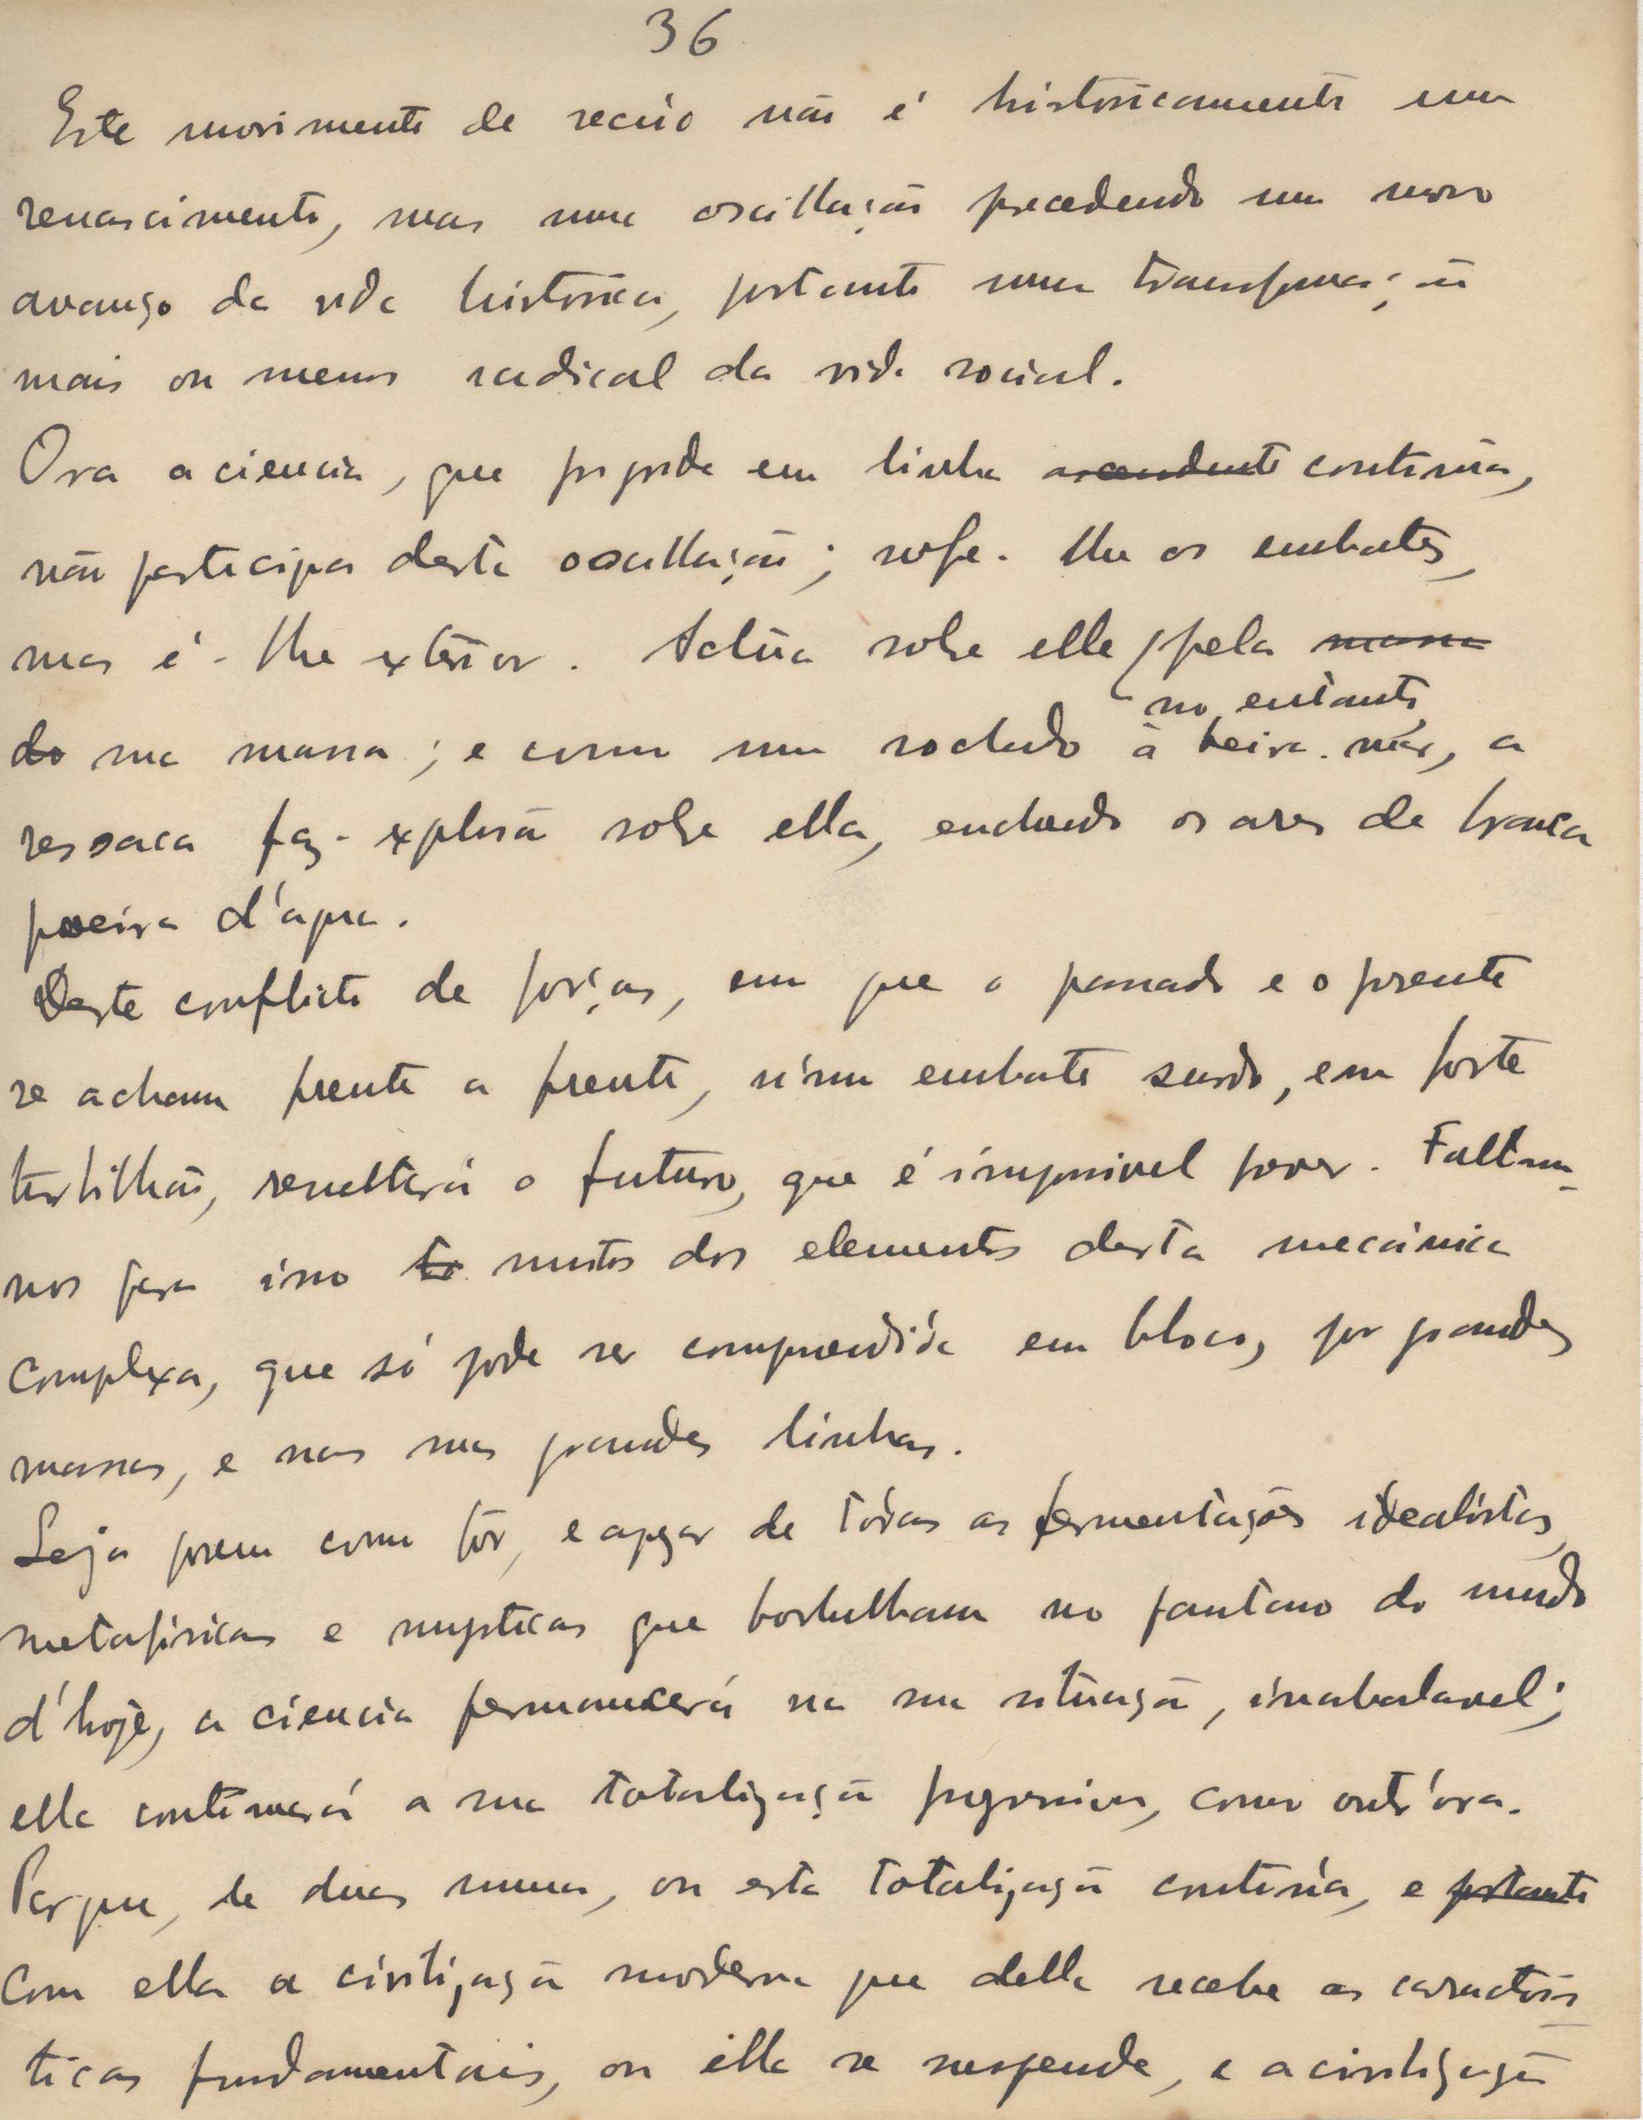 36
Este movimento de recúo não é historicamente um
renascimento, mas uma oscillação precedendo um novo
avanço da vida historica, portanto uma transformação
mais ou menos radical da vida social.
Ora a ciencia, que progride em linha ascendente continúa,
não participa desta oscillação; sofre-lhe os embates,
mas é-lhe exterior. Actúa sobre elle pela massa
do sua massa; e como um rochedo à beira-mar, a
no entanto
ressaca faz explosão sobre ella, enchendo os ares de branca
poeira d'agua.
Deste conflicto de forças, em que o passado e o presente
se acham frente a frente, n'um embate surdo, em forte
turbilhão, resultará o futuro, que é impossivel prever. Faltam-
nos para isso muitos dos elementos desta mecánica
complexa, que só pode ser comprendida em bloco, por grandes
massas, e nas suas grandes linhas.
Seja porem como fôr, e apezar de tódas as fermentações idealistas,
metafisicas e mysticas que borbulham no pantano do mundo
d'hoje, a ciencia permanecerá na sua situação, inabalavel;
ella continuará a sua totalização progressiva, como outr'ora.
Porque, de duas uma, ou esta totalização continúa, e portanto
com ella a civilização moderna que della recebe as caracterís
ticas fundamentais, ou ella se suspende, e a civilização